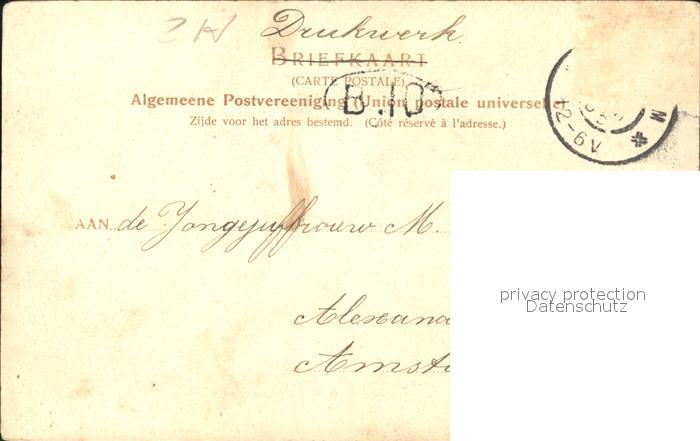 Drukwerk.
BRIEFKAART
(CARTE POSTALE)
B.10
Algemeene Postvereeniging (Union postale universelle)
Zijde voor het adres bestemd. (Côté réservé à l'adresse.)
12-6N
M
AAN de Jongejuffrouw M.
privacy protection
Datenschutz
Alexand
Amst